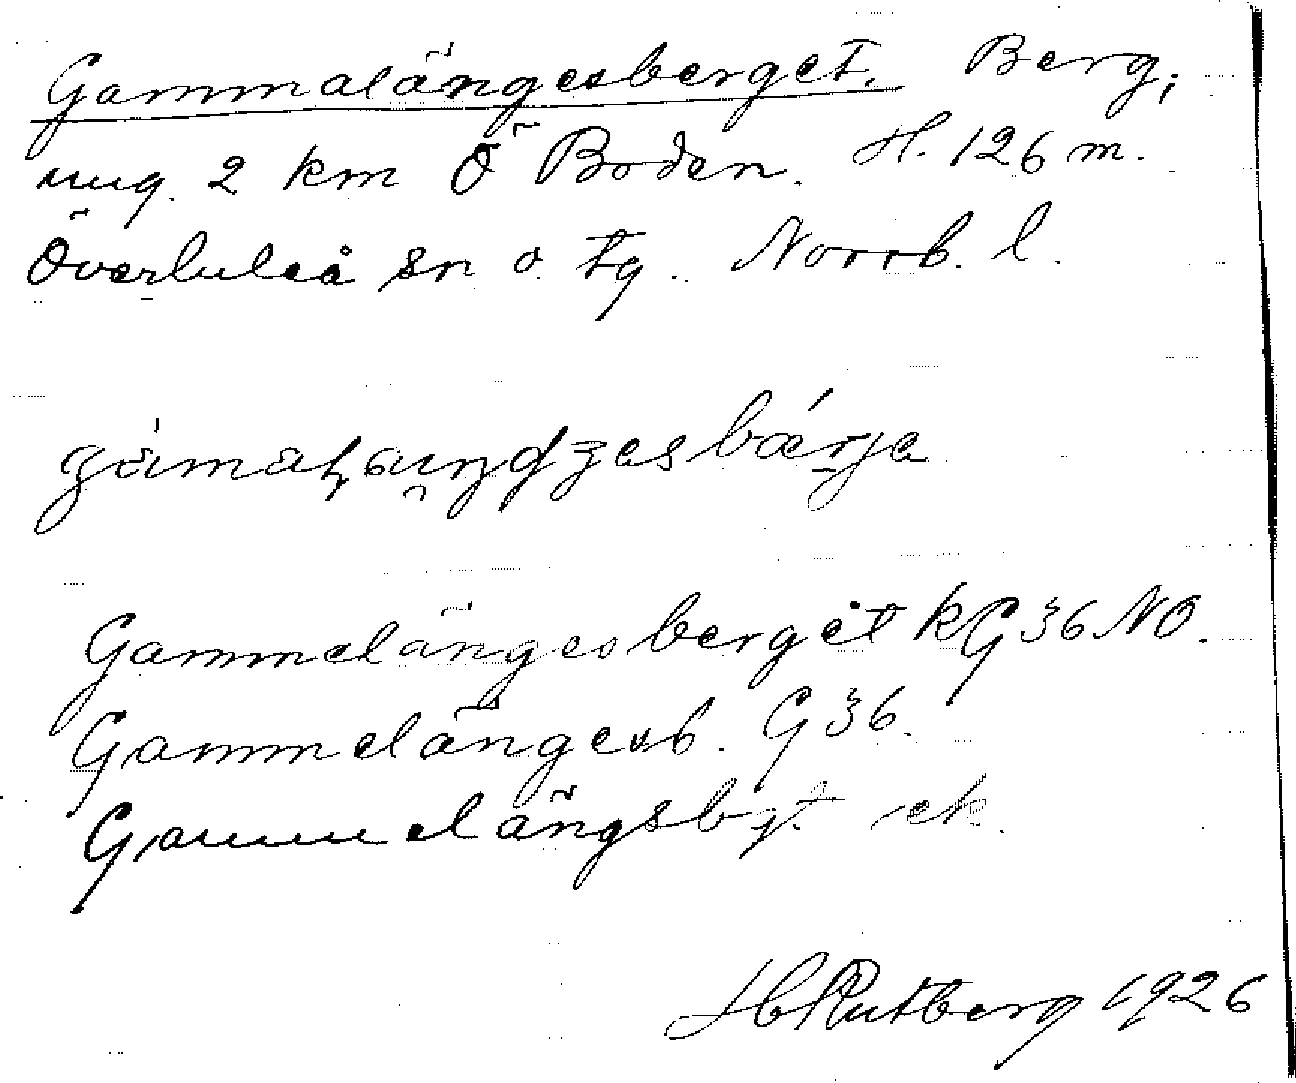 Gammalängesberget. Berg,
ung. 2 km Ö Boden. H. 126 m.
Överluleå sn o. tg. Norrb. l.
Gammelängesberget kG36NO.
Gammelängesb. G36.
Gammelängsbgt ek.
H Rutberg 1926